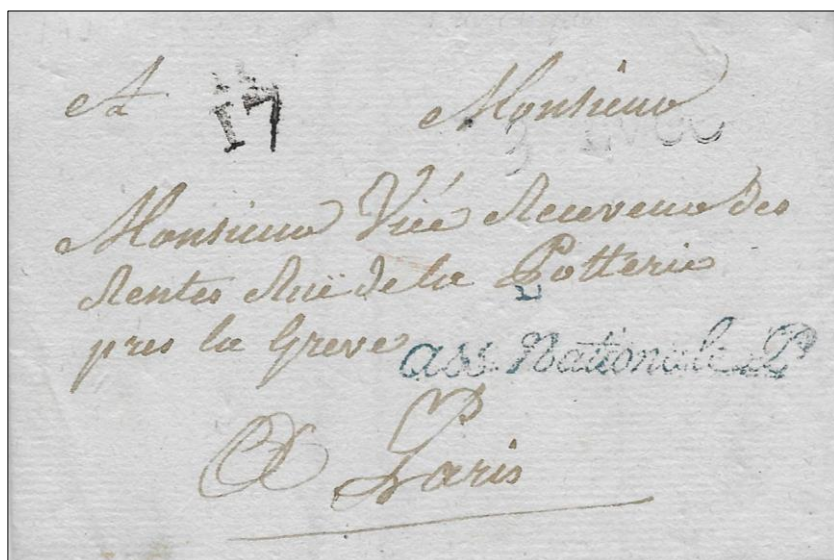 A 17 Monsieur
Monsieur Viée Receveur des
Rentes Ruë de la Potterie
pres la Greve ass. Nationale P
A Paris